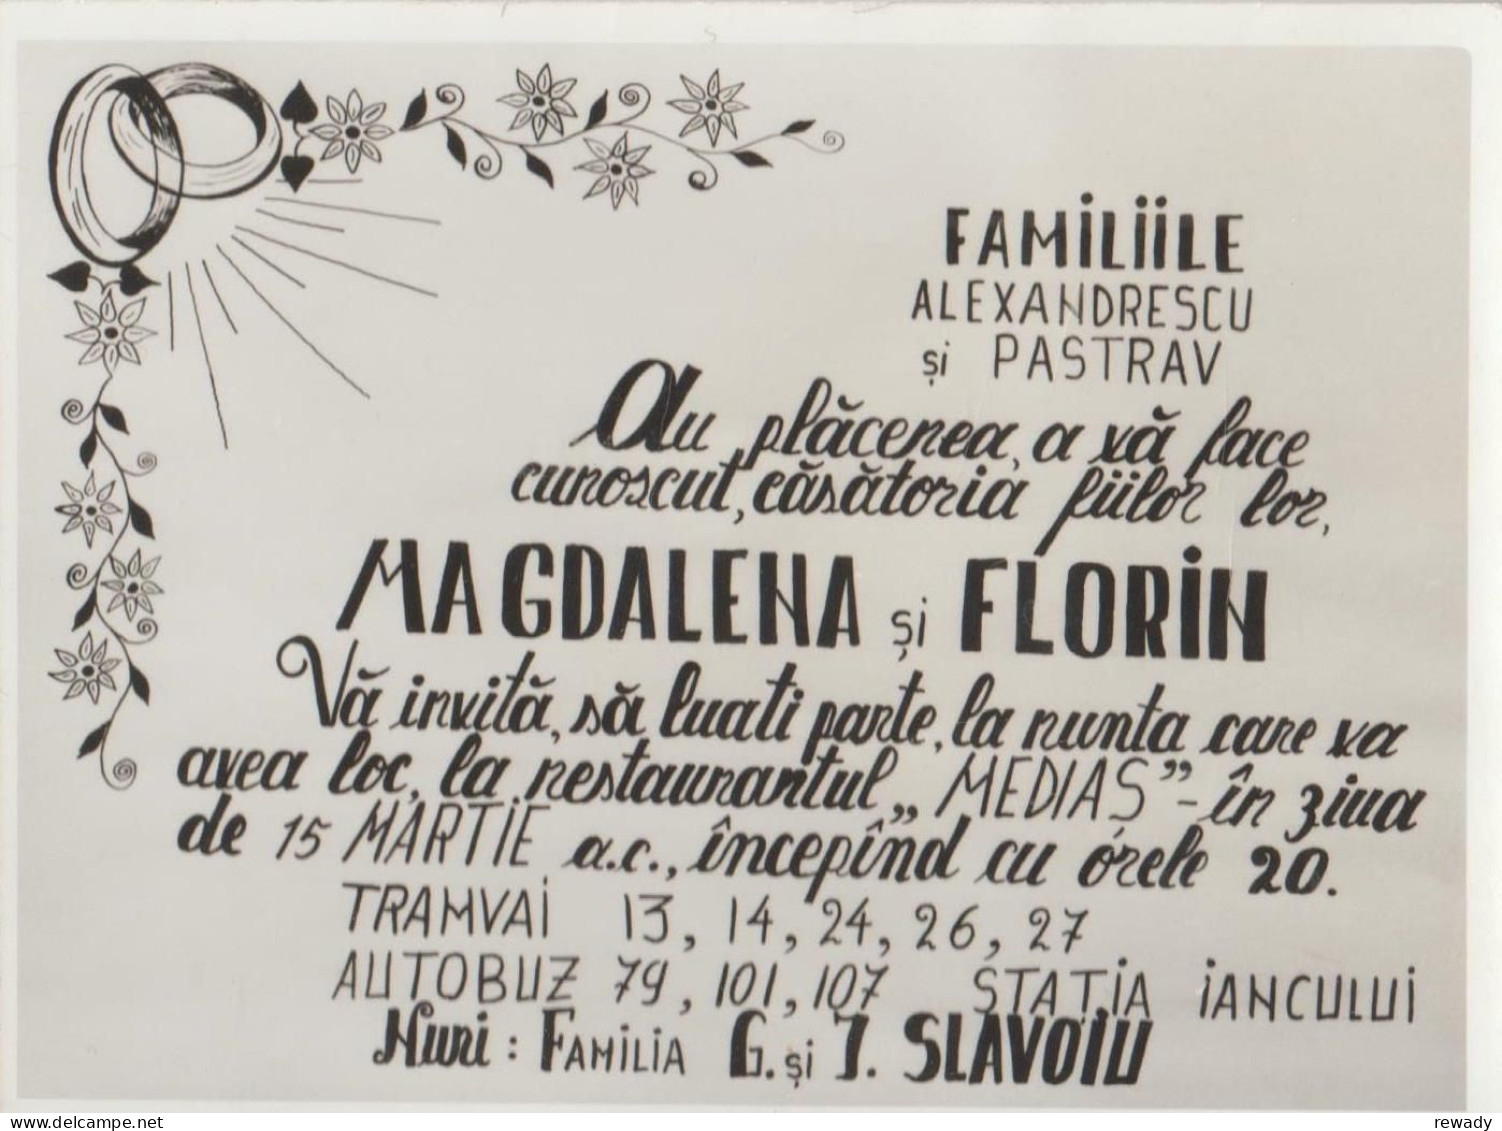 FAMILIILE
ALEXANDRESCU
și PASTRAV
Au plăcerea, a vă face
cunoscut, căsătoria fiilor lor,
MAGDALENA și FLORIN
Vă invită, să luati parte, la nunta care va
avea loc, la restaurantul „MEDIAȘ”- în ziua
de 15 MARTIE a.c., începînd cu orele 20.
TRAMVAI 13, 14, 24, 26, 27
AUTOBUZ 79, 101, 107 STAȚIA IANCULUI
Nuni: FAMILIA G. și I. SLAVOIU
delcampe.net
rewady